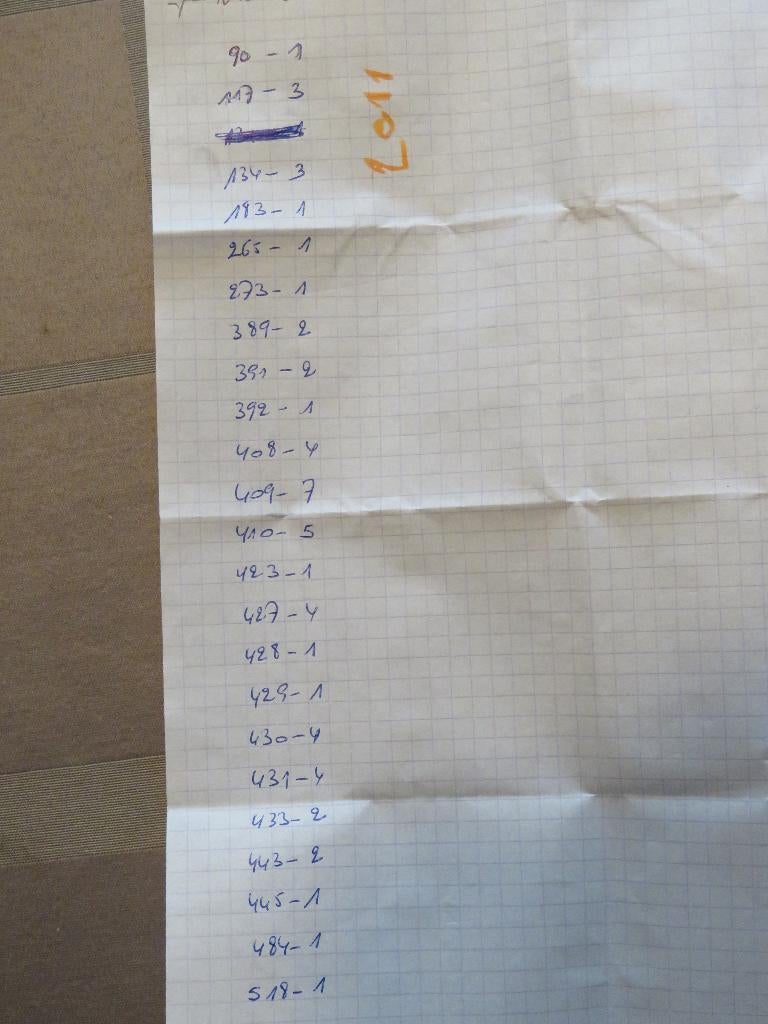 90 - 1
117 - 3
134 - 3
183 - 1
265 - 1
273 - 1
389 - 2
391 - 2
392 - 1
408 - 4
409 - 7
410 - 5
423 - 1
427 - 4
428 - 1
429 - 1
430 - 4
431 - 4
433 - 2
443 - 2
445 - 1
484 - 1
518 - 1
2011